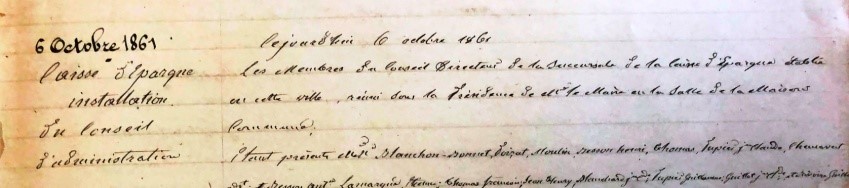 6 Octobre 1861
Caisse d'Epargne
installation
du Conseil
d'administration
Cejourd'hui 6 octobre 1861
Les Membres du Conseil Directeur de la Succursale de la Caisse d'Epargne établie
en cette ville, réuni sous la Présidence de Mr. le Maire en la Salle de la Maison
Commune,
Etant présents Blanchon-Bonnet, Moulin, Besson henri, Thomas, Claude,
Besson Lamarque, Thomas francois, Jean Henry, Blanchard